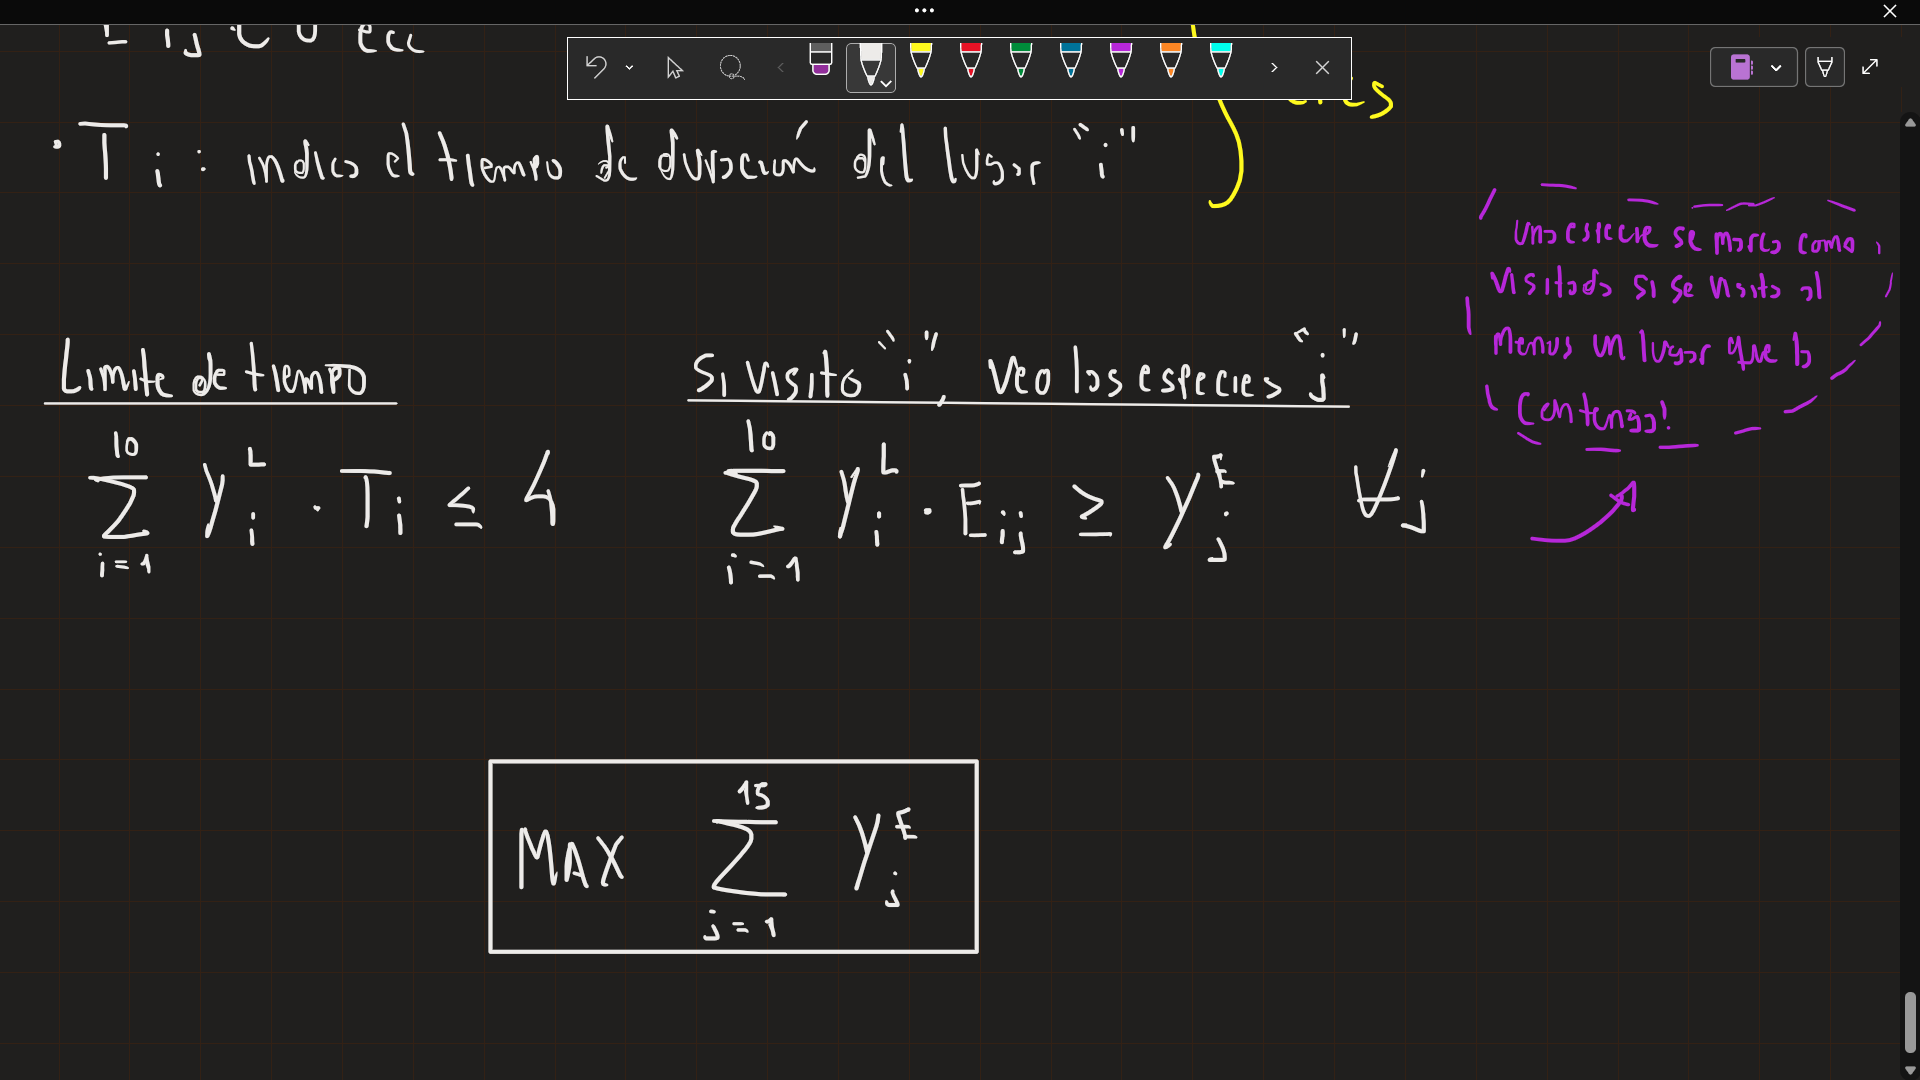 • T i : indica el tiempo de duración del lugar "i"
una especie se marca como
visitada si se visita al
menos un lugar que la
contenga!
Limite de tiempo
10
∑ Y_i^L · T_i ≤ 4
i=1
Si visito "i", veo las especies "j"
10
∑ Y_i^L · E_ij ≥ Y_j^E ∀j
i=1
15
MAX ∑ Y_j^E
j=1